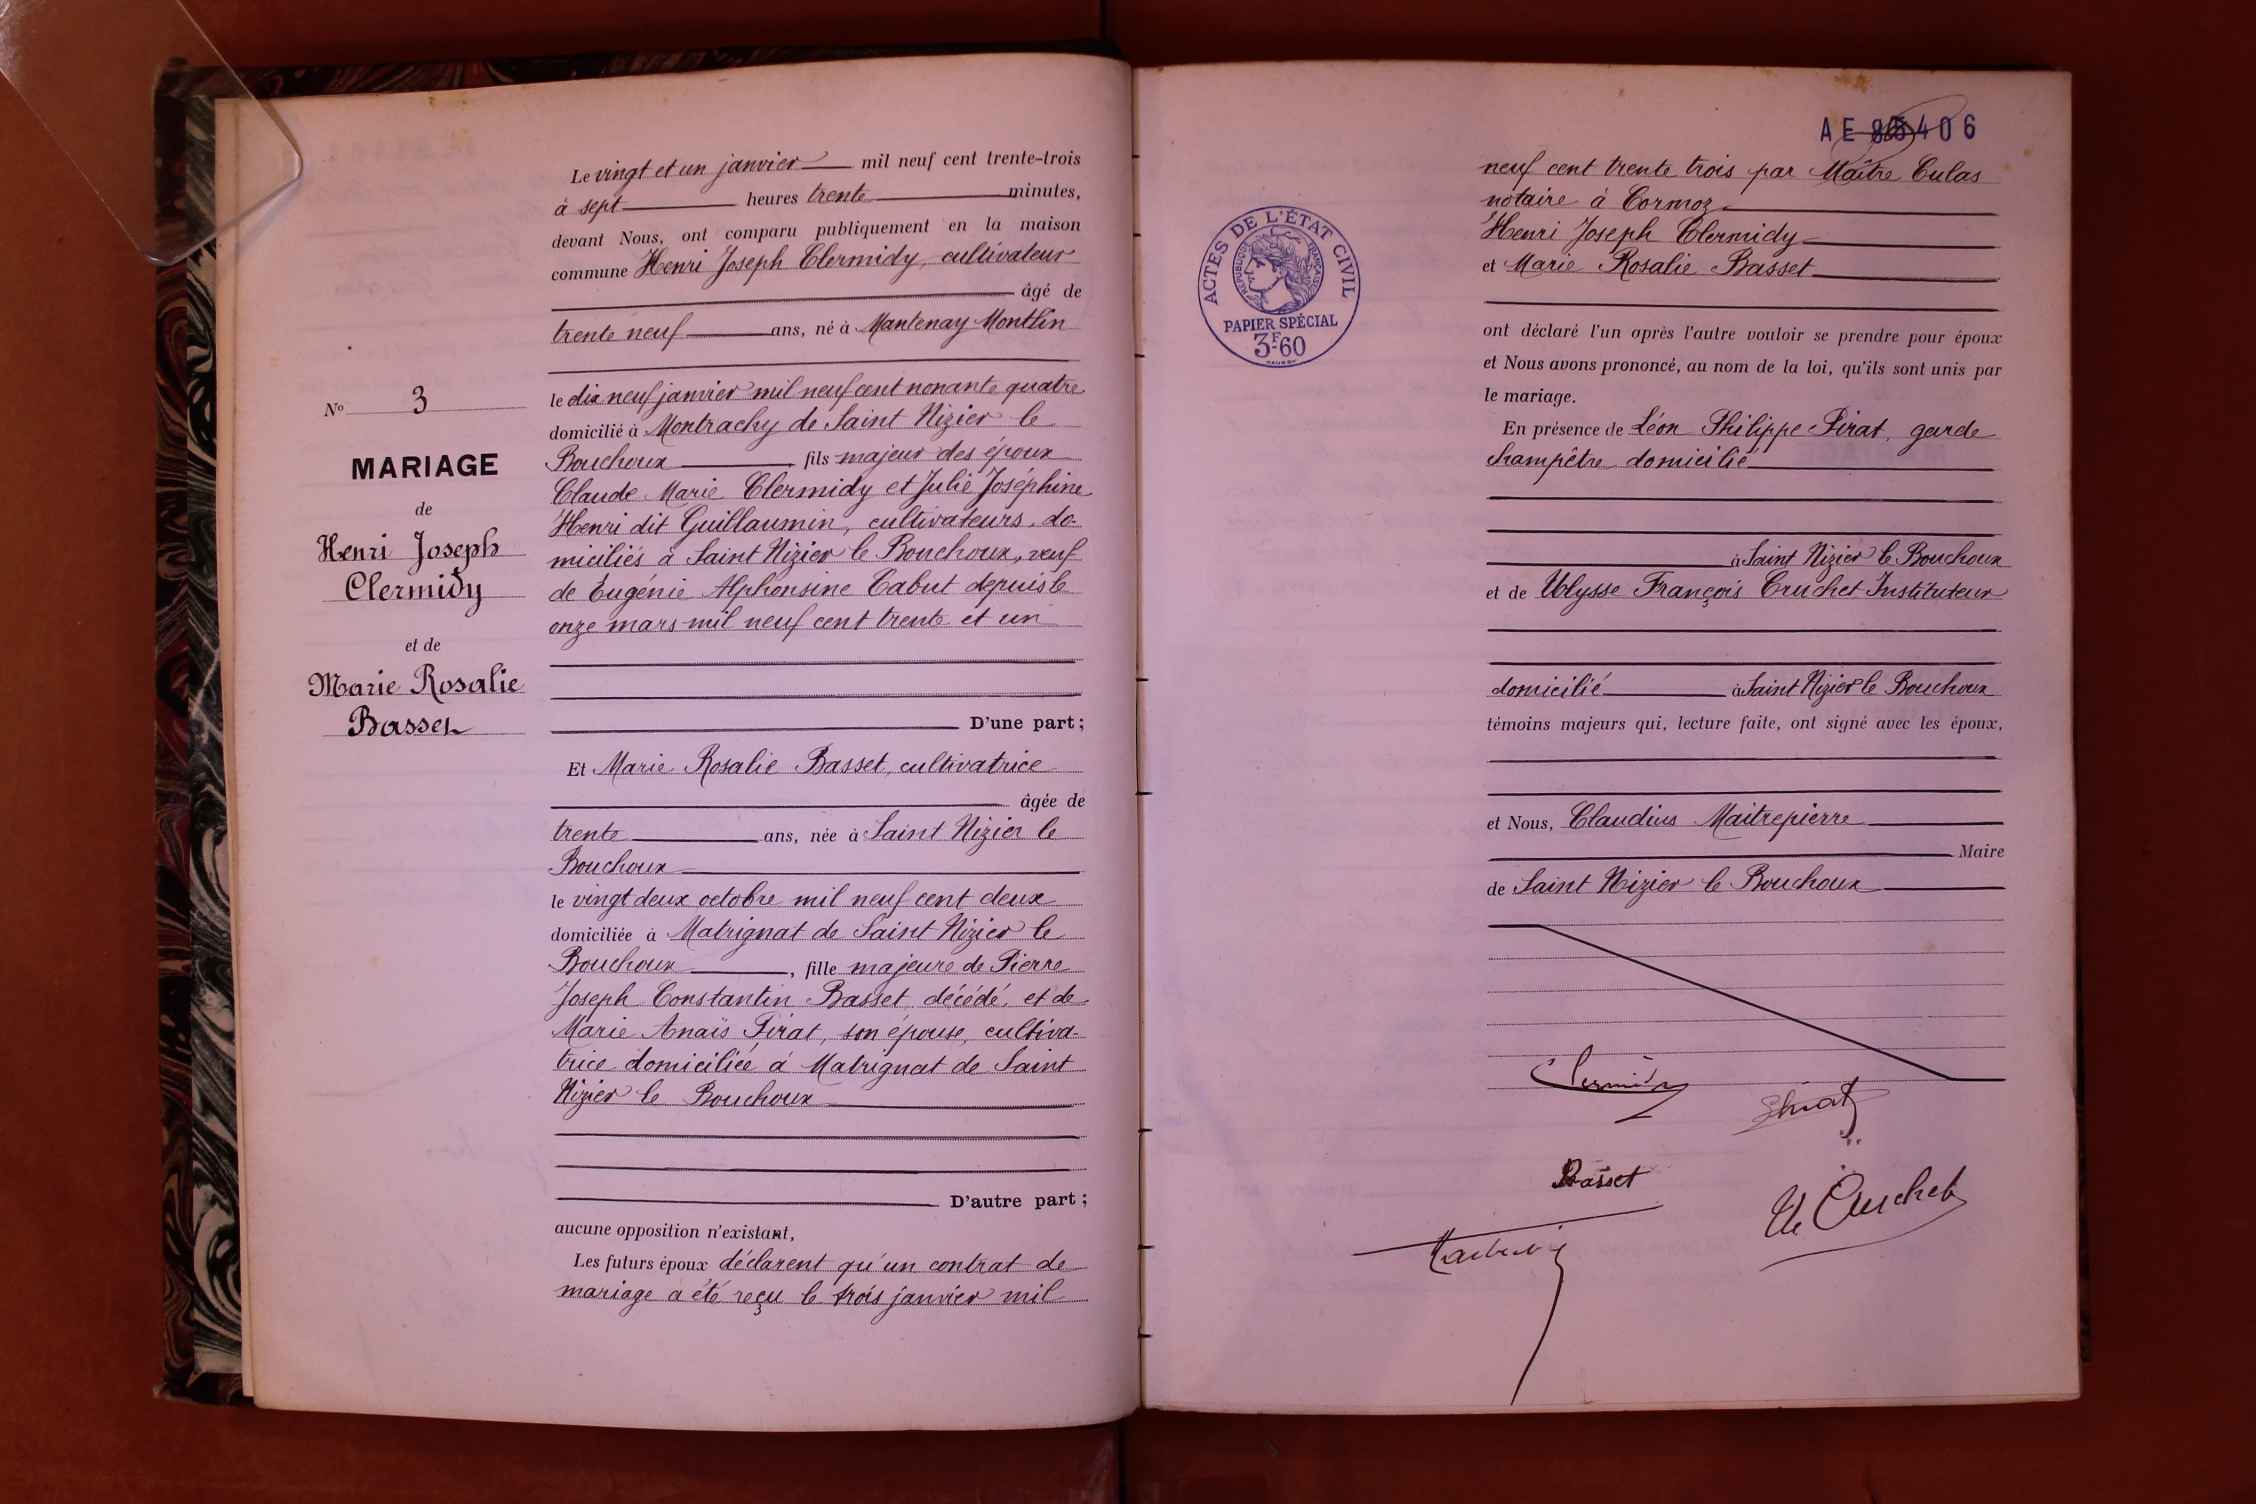 Le vingt et un janvier mil neuf cent trente-trois
à sept heures trente minutes,
devant Nous, ont comparu publiquement en la maison
commune Henri Joseph Clermidy, cultivateur
âgé de
trente neuf ans, né à Mantenay Montlin
le dix neuf janvier mil neuf cent nonante quatre
domicilié à Montrachy de Saint Nizier le
Bouchoux fils majeur des époux
Claude Marie Clermidy et Julie Joséphine
Henri dit Guillaumin, cultivateurs, do-
miciliés à Saint Nizier le Bouchoux, veuf
de Eugénie Alphonsine Cabut depuis le
onze mars mil neuf cent trente et un
D'une part ;
Et Marie Rosalie Basset, cultivatrice
âgée de
trente ans, née à Saint Nizier le
Bouchoux
le vingt deux octobre mil neuf cent deux
domiciliée à Matrignat de Saint Nizier le
Bouchoux, fille majeure de Pierre
Joseph Constantin Basset, décédé, et de
Marie Anaïs Pirat, son épouse, cultiva-
trice domiciliée à Matrignat de Saint
Nizier le Bouchoux
D'autre part ;
aucune opposition n'existant,
Les futurs époux déclarent qu'un contrat de
mariage a été reçu le trois janvier mil
No 3
MARIAGE
de
Henri Joseph
Clermidy
et de
Marie Rosalie
Basset
AE 406
neuf cent trente trois par Maître Culas
notaire à Cormoz
Henri Joseph Clermidy
et Marie Rosalie Basset
ont déclaré l'un après l'autre vouloir se prendre pour époux
et Nous avons prononcé, au nom de la loi, qu'ils sont unis par
le mariage.
En présence de Léon Philippe Pirat, garde
champêtre domicilié
à Saint Nizier le Bouchoux
et de Ulysse François Cruchet Instituteur
domicilié à Saint Nizier le Bouchoux
témoins majeurs qui, lecture faite, ont signé avec les époux,
et Nous, Claudius Maitrepierre
Maire
de Saint Nizier le Bouchoux
Clermidy
Basset
U. Cruchet
ACTES DE L'ÉTAT CIVIL
RÉPUBLIQUE FRANÇAISE
PAPIER SPÉCIAL
3F60